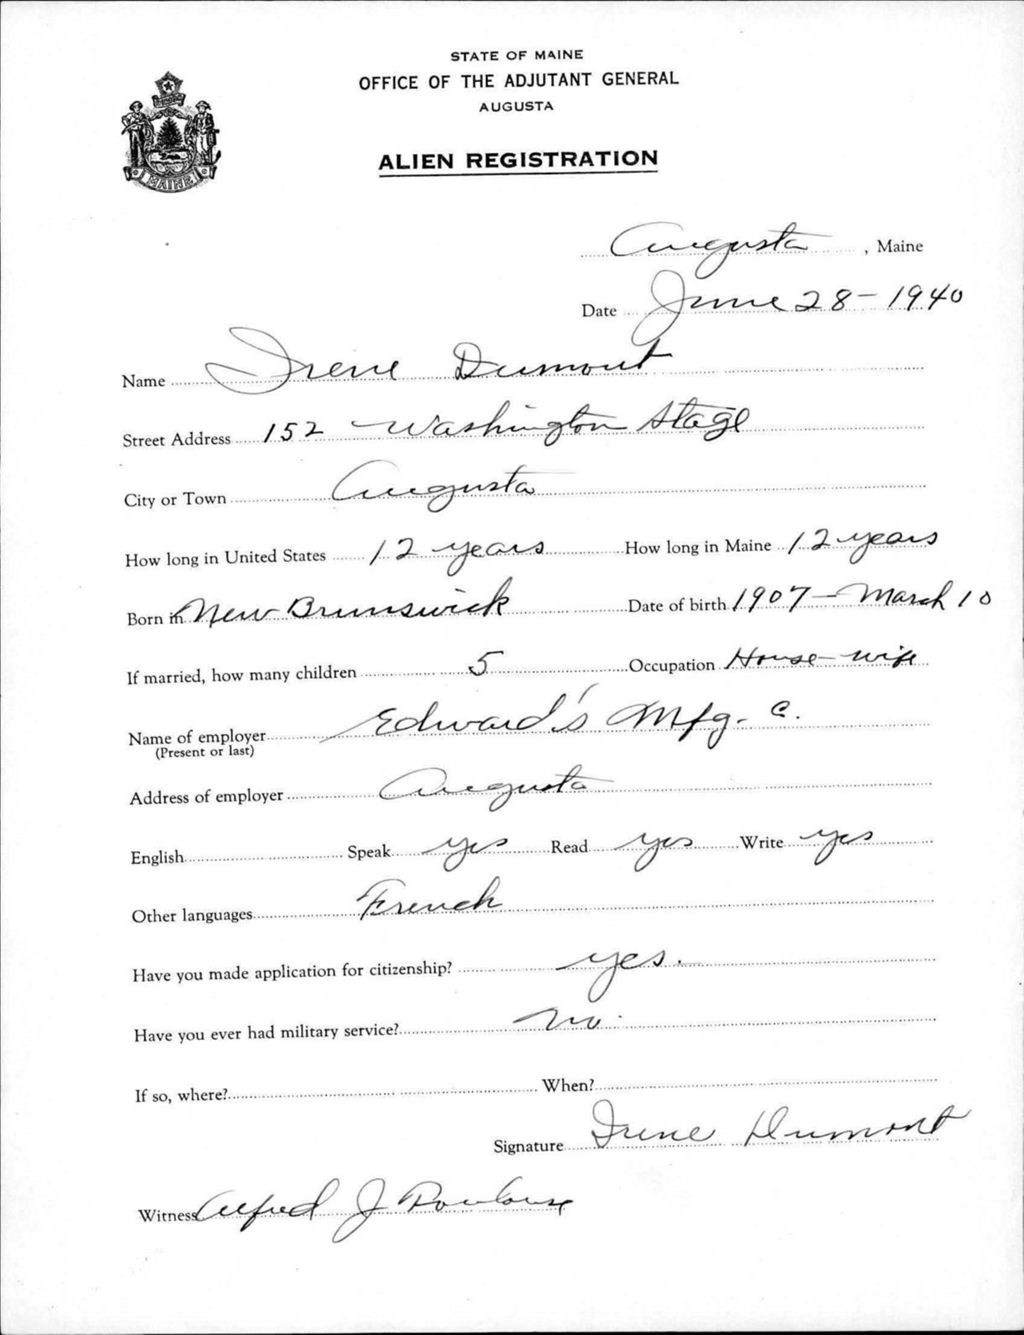 STATE OF MAINE
OFFICE OF THE ADJUTANT GENERAL
AUGUSTA
ALIEN REGISTRATION
MAINE
Augusta, Maine
Date June 28-1940
Name Irene Dumont
Street Address 152 Washington Stage
City or Town Augusta
How long in United States 12 years How long in Maine 12 years
Born in New Brunswick Date of birth 1907 - March 10
If married, how many children 5 Occupation House wife
Name of employer Edward's Mfg. C.
(Present or last)
Address of employer Augusta
English Speak yes Read yes Write yes
Other languages French
Have you made application for citizenship? yes.
Have you ever had military service? no.
If so, where? When?
Signature Irene Dumont
Witness Alfred J